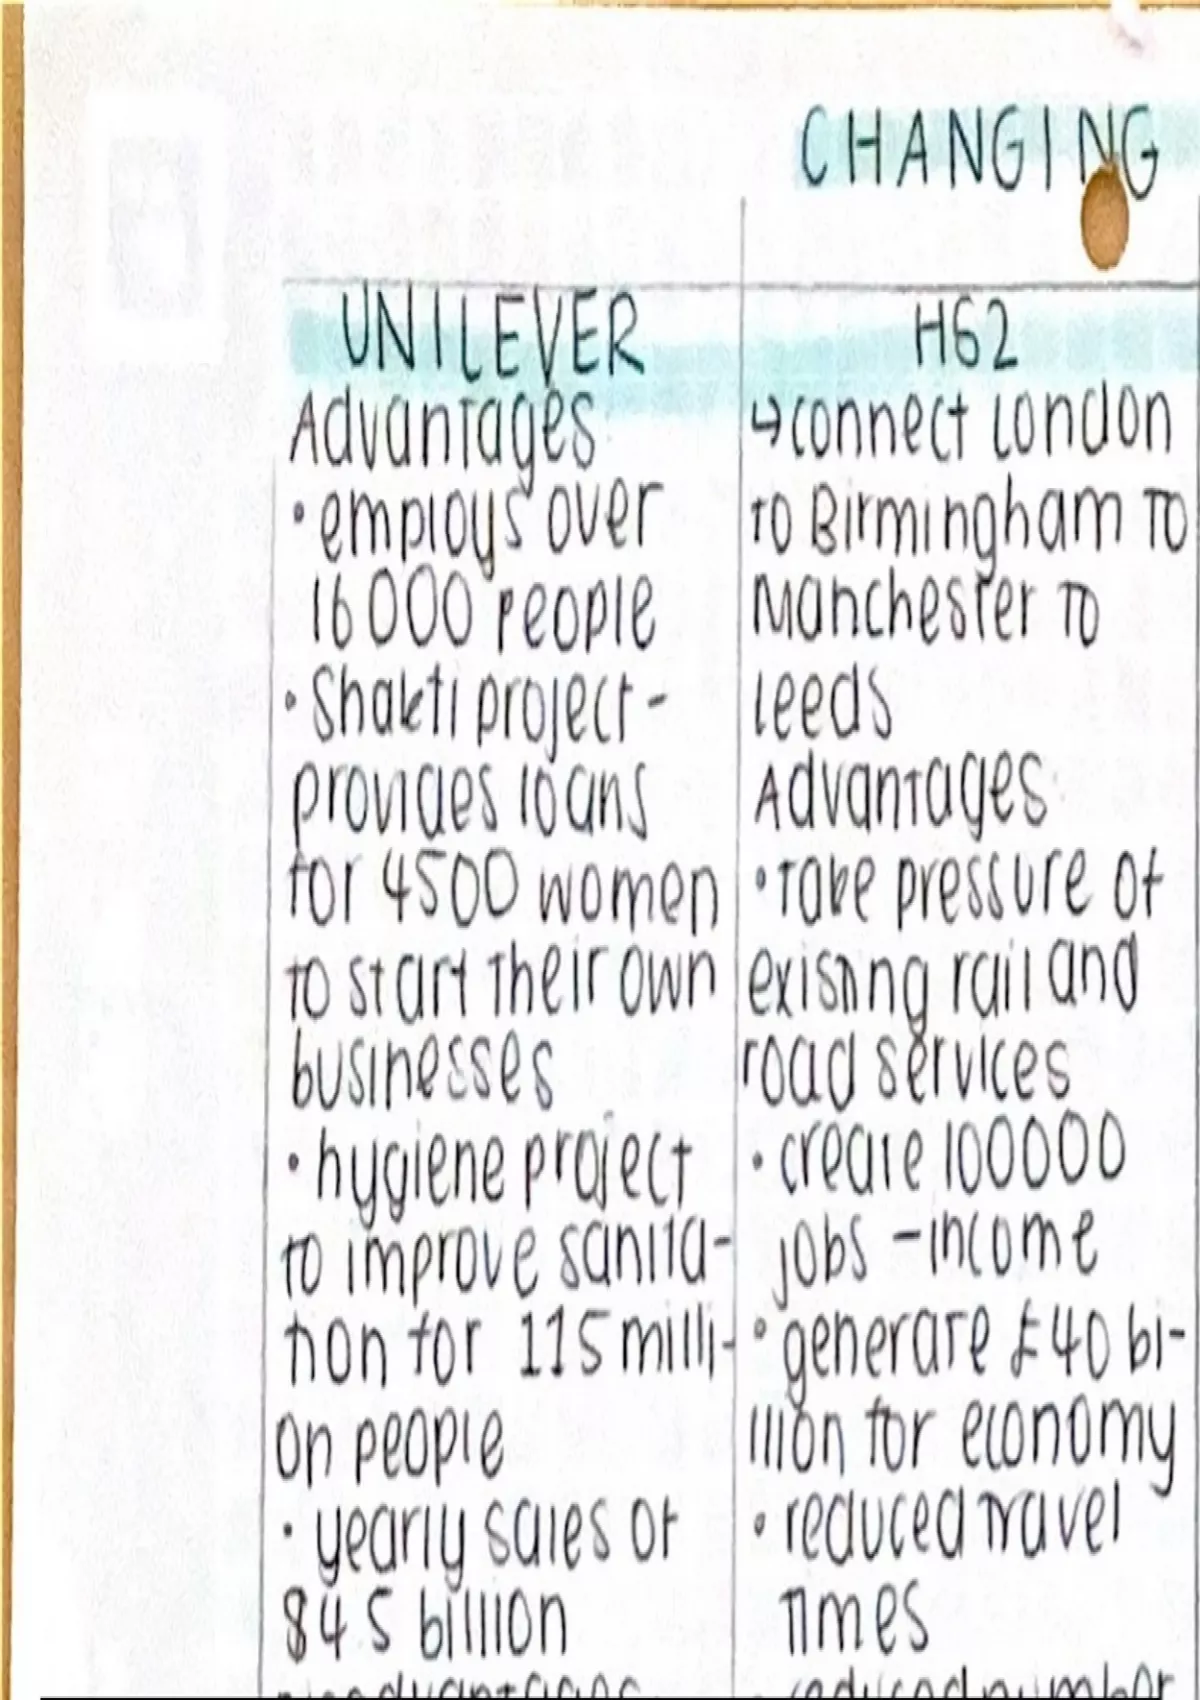 CHANGING
UNILEVER
Advantages
• employs over
16000 people
• Shakti project -
provides loans
for 4500 women
to start their own
businesses
• hygiene project
to improve sanita-
tion for 115 milli-
on people
• yearly sales of
$4.5 billion
Disadvantages
HS2
↳ connect London
to Birmingham to
Manchester to
Leeds
Advantages
• take pressure of
existing rail and
road services
• create 100000
jobs - income
• generate £40 bi-
llion for economy
• reduced travel
times
• reduced number